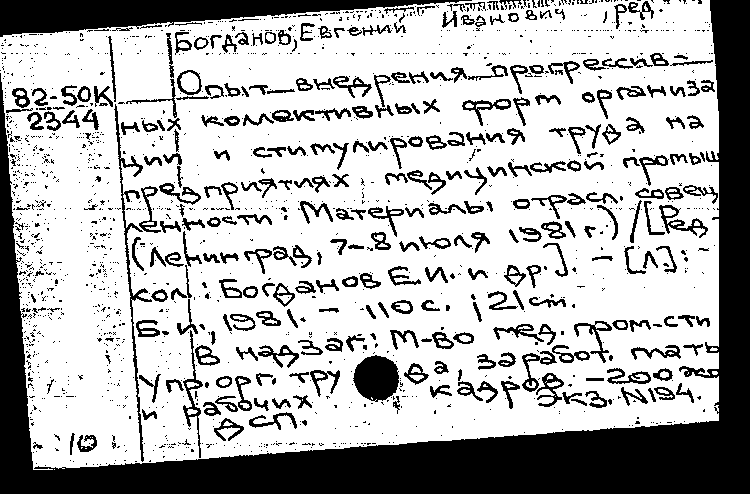 Богданов, Евгений Иванович, ред.
82-50К
2344
Опыт внедрения прогрессив-
ных коллективных форм организа
ции и стимулирования труда на
предприятиях медицинской промыш
ленности: Материалы отрасл. совещ
(Ленинград, 7-8 июля 1981 г.) /[Ред-
кол.: Богданов Е.И. и др.]. - [Л]: -
Б.и., 1981. - 110 с. ; 21 см.
В надзаг.: М-во мед. пром-сти
Упр. орг. тру да, заработ. платы
и рабочих кадров. -200 экз
ДСП. Экз. N194.
10